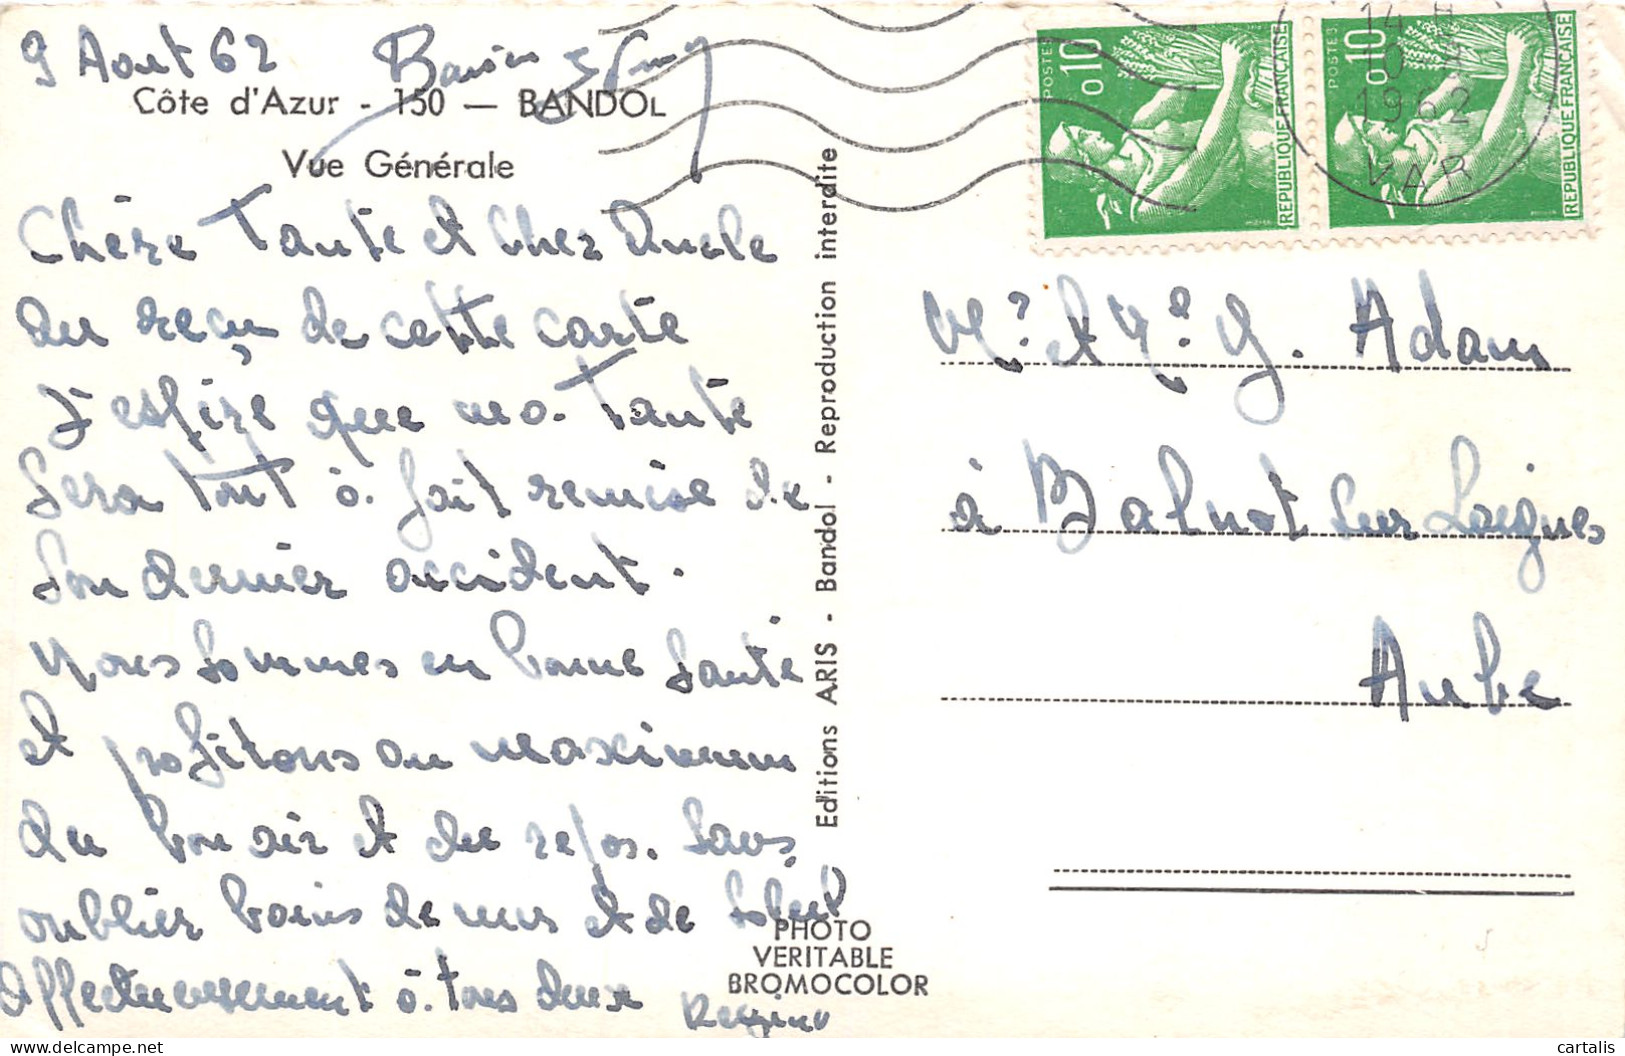 9 Aout 62
Côte d'Azur - 150 — BANDOL
Vue Générale
Chère Tante et Cher Oncle
Au reçu de cette carte
J'espère que ma Tante
Sera tout à fait remise de
Son dernier accident.
Nous sommes en bonne santé
et profitons au maximum
du bon air et du repos. Sans
oublier bains de mer et de soleil
Affectueusement à tous deux
Editions ARIS - Bandol - Reproduction interdite
PHOTO
VERITABLE
BROMOCOLOR
POSTES 0,10
REPUBLIQUE FRANÇAISE
POSTES 0,10
REPUBLIQUE FRANÇAISE
14 H
10
1962
VAR
Mr et Me G. Adam
à Balnot sur Laignes
Aube
cartalis